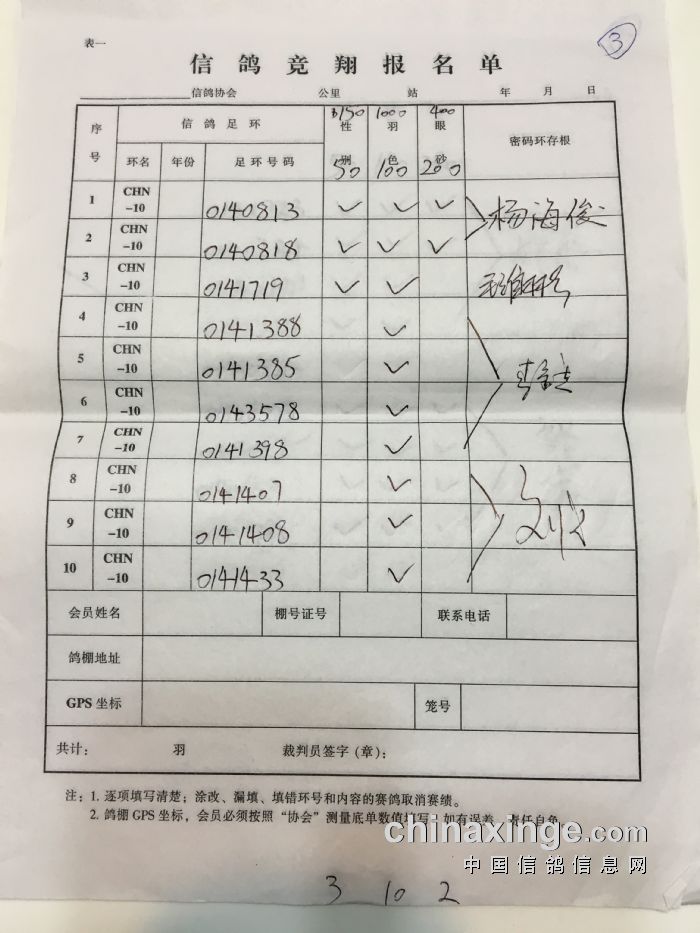 表一
③
信鸽竞翔报名单
信鸽协会 公里 站 年 月 日
序号 信鸽足环 性别 羽色 眼砂 密码环存根
150 1000 400
环名 年份 足环号码 50 100 200
1 CHN-10 0140813 ✓ ✓ ✓ 杨海俊
2 CHN-10 0140818 ✓ ✓ ✓
3 CHN-10 0141719 ✓ ✓
4 CHN-10 0141388 ✓
5 CHN-10 0141385 ✓
6 CHN-10 0143578 ✓
7 CHN-10 0141398 ✓
8 CHN-10 0141407 ✓
9 CHN-10 0141408 ✓
10 CHN-10 0141433 ✓
会员姓名 棚号证号 联系电话
鸽棚地址
GPS坐标 笼号
共计： 羽 裁判员签字（章）：
注：1. 逐项填写清楚；涂改、漏填、填错环号和内容的赛鸽取消赛绩。
2. 鸽棚GPS坐标，会员必须按照“协会”测量底单数值填写，如有误差，责任自负。
chinaxinge.com
中国信鸽信息网
3 10 2